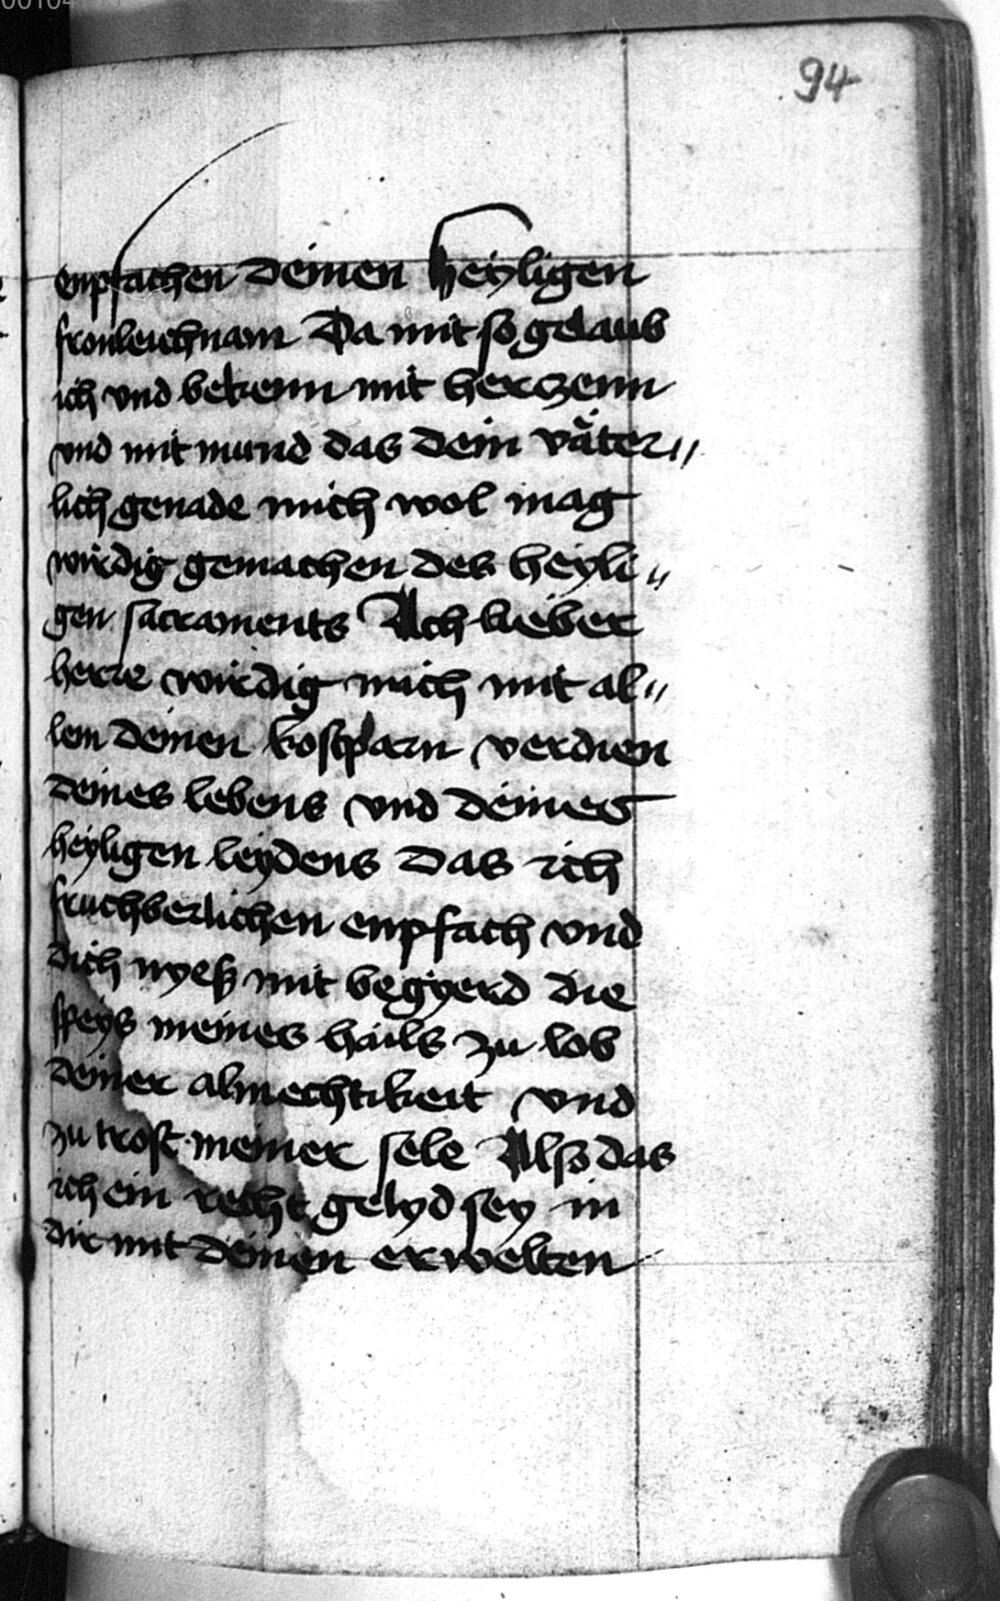 94
enpfachen deinen heyligen
fronleichnam Da mit so gelaub
ich vnd bekenn mit herczenn
vnd mit mund das dein väter〃
lich genade mich wol mag
wirdig gemachen des heyli〃
gen sacraments Ach lieber
herre wirdig mich mit al〃
lem deinen kostparn verdien
deines lebens vnd deines
heyligen leydens das ich
fruchberlichen enpfach vnd
dich nyeß mit begyerd die
speys meines hails zu lob
deiner almechtikeit vnd
zu trost meiner sele Alß das
ich ein recht gelyd sey in
dir mit deinen erwelten